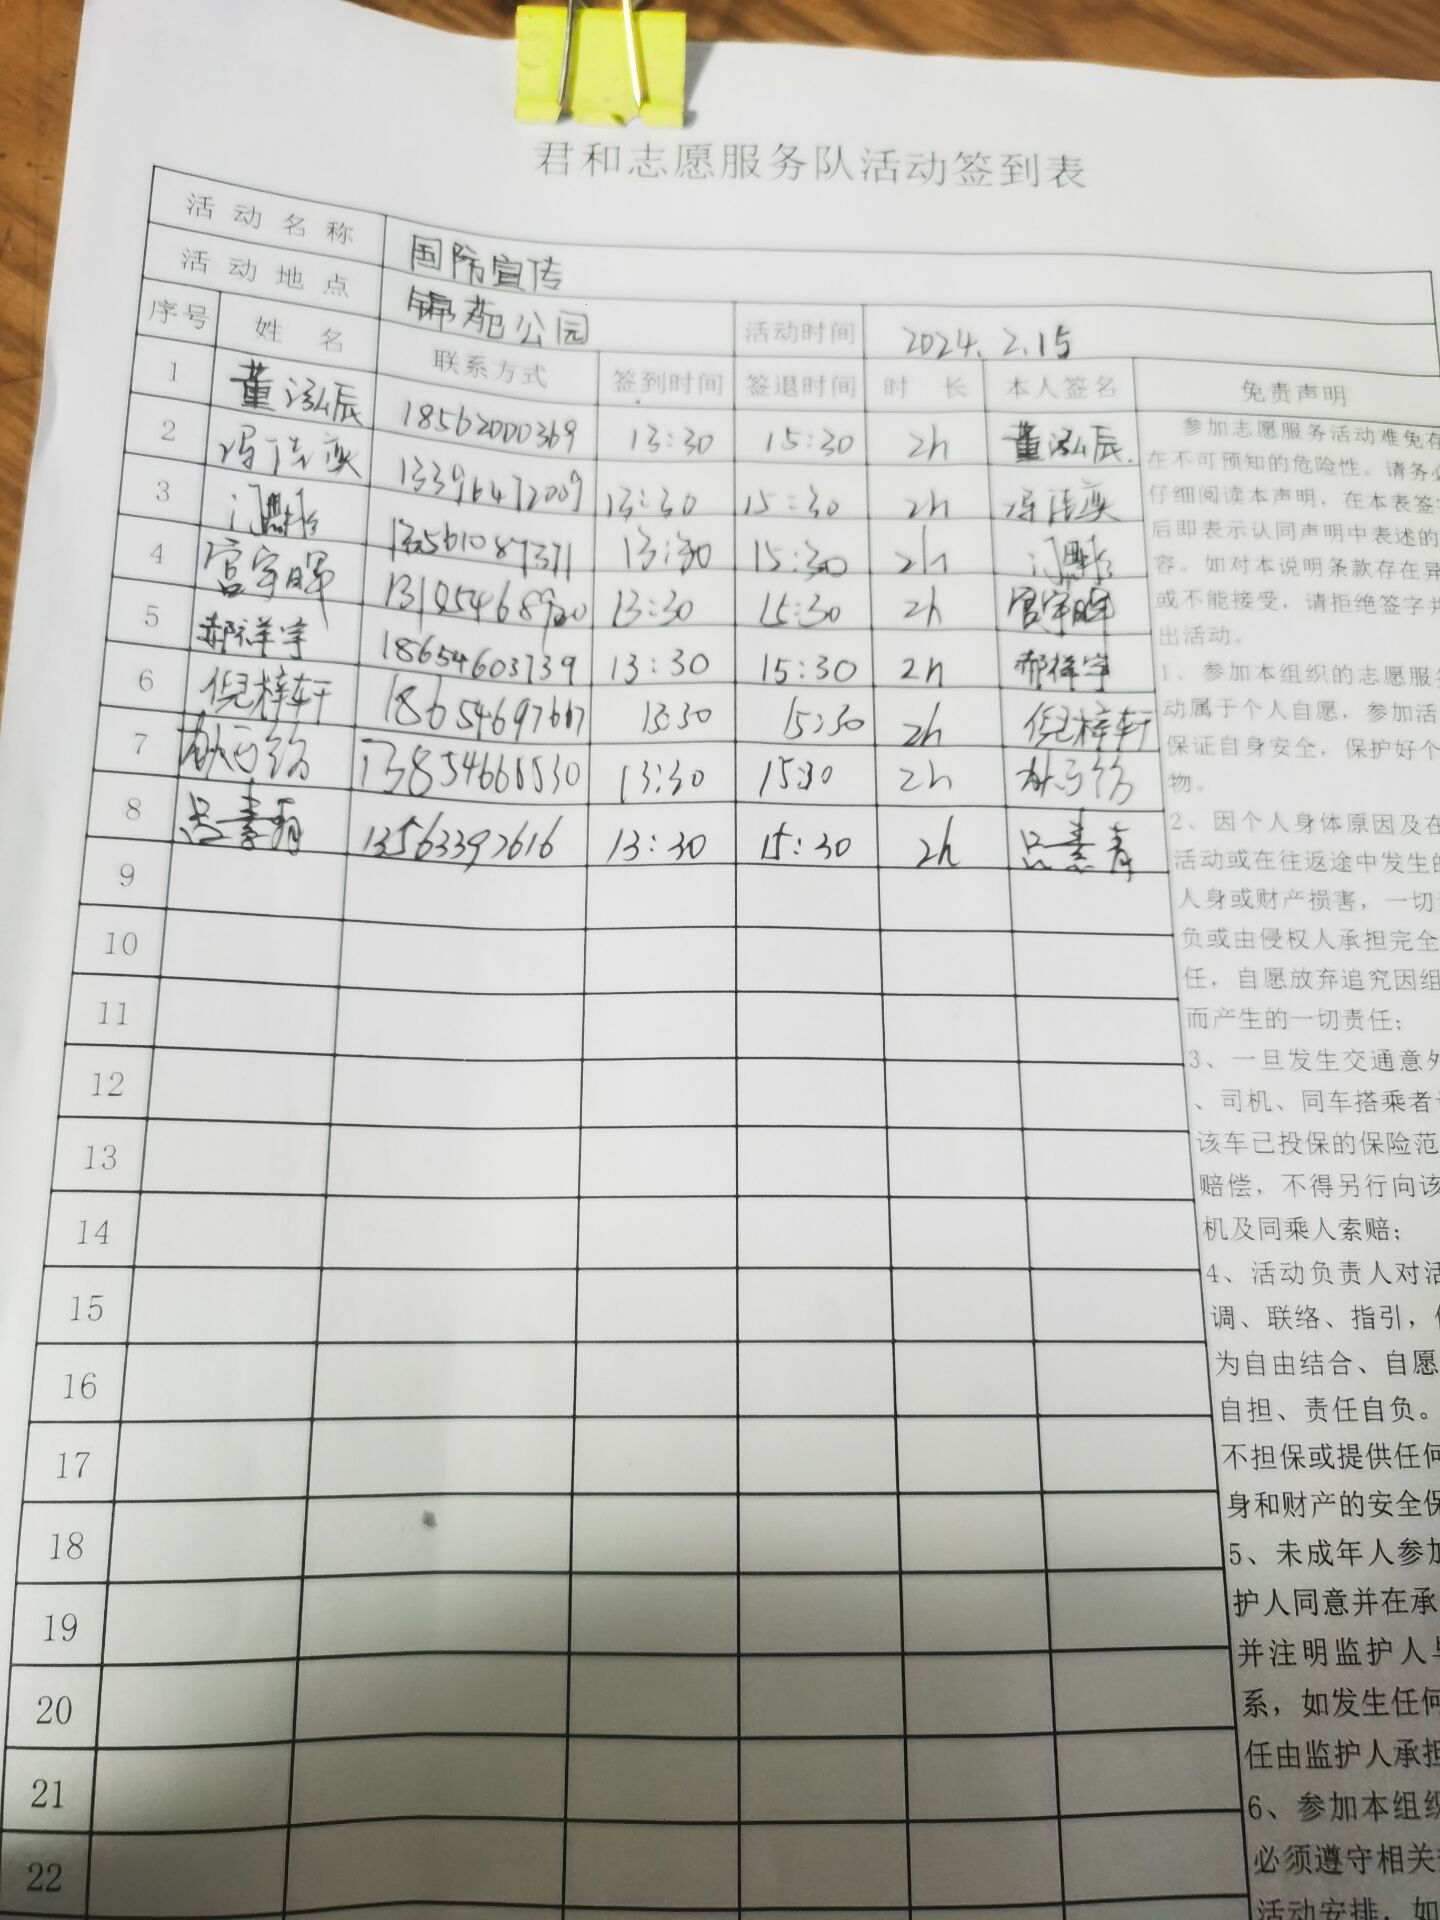 君和志愿服务队活动签到表
活动名称 国防宣传
活动地点 锦苑公园 活动时间 2024.2.15
序号 姓名 联系方式 签到时间 签退时间 时长 本人签名 免责声明
1 董泓辰 18562000369 13:30 15:30 2h 董泓辰.
2 冯浩奕 13396472009 13:30 15:30 2h 冯浩奕
3 13561087371 13:30 15:30 2h
4 宫宇晖 13:30 15:30 2h 宫宇晖
5 郝祥宇 18654603739 13:30 15:30 2h 郝祥宇
6 倪梓轩 13:30 15:30 2h 倪梓轩
7 13:30 15:30 2h
8 吕素青 13563392616 13:30 15:30 2h 吕素青
9
10
11
12
13
14
15
16
17
18
19
20
21
22
参加志愿服务活动难免存
在不可预知的危险性。请务必
仔细阅读本声明，在本表签字
后即表示认同声明中表述的
容。如对本说明条款存在异
或不能接受，请拒绝签字并
出活动。
1、参加本组织的志愿服务
动属于个人自愿，参加活
保证自身安全，保护好个
物。
2、因个人身体原因及在
活动或在往返途中发生的
人身或财产损害，一切
负或由侵权人承担完全
任，自愿放弃追究因组
而产生的一切责任；
3、一旦发生交通意外
、司机、同车搭乘者
该车已投保的保险范
赔偿，不得另行向该
机及同乘人索赔；
4、活动负责人对活
调、联络、指引，
为自由结合、自愿
自担、责任自负。
不担保或提供任何
身和财产的安全保
5、未成年人参加
护人同意并在承
并注明监护人与
系，如发生任何
任由监护人承担
6、参加本组织
必须遵守相关
活动安排，如